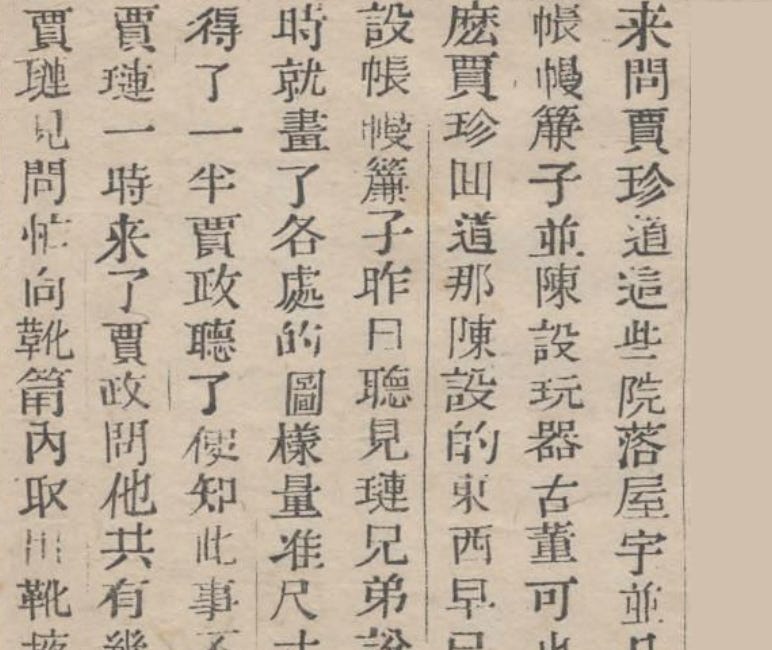 来問賈珍道這些院落屋宇並
帳幔簾子並陳設玩器古董可
麽賈珍回道那陳設的東西早
設帳幔簾子昨日聽見璉兄弟
時就畫了各處的圖樣量准尺
得了一半賈政聽了便知此事
賈璉一時来了賈政問他共有
賈璉見問忙向靴筩內取出靴